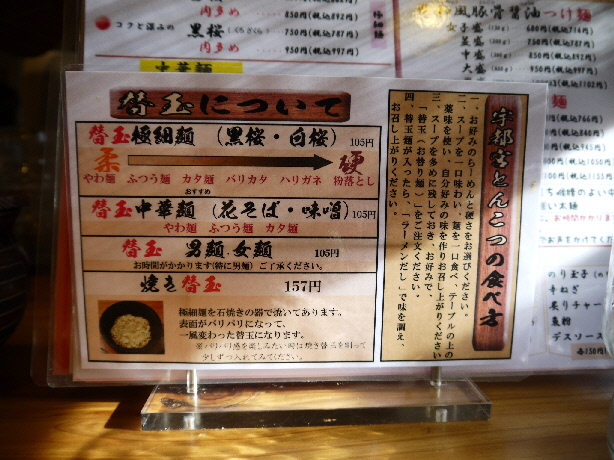 肉多め 850円(税込892円)
コクと深みの 黒桜(くろざくら) 750円(税込787円)
肉多め 950円(税込997円)
極細麺
中華麺
風豚骨醤油つけ麺
女子盛
並盛
中
大
替玉について
替玉極細麺 (黒桜・白桜) 105円
柔 硬
やわ麺 ふつう麺 カタ麺 バリカタ ハリガネ 粉落とし
おすすめ
替玉中華麺 (花そば・味噌) 105円
やわ麺 ふつう麺 カタ麺
替玉 男麺・女麺 105円
お時間がかかります(特に男麺)ご了承ください。
焼き替玉 157円
極細麺を石焼きの器で焼いてあります。
表面がバリバリになって、
一風変わった替玉になります。
少しずつ入れてみてください。
宇都宮とんこつの食べ方
一、お好みのらーめんと硬さをお選びください。
二、スープを一口味わい、麺を一口食べ、テーブルの上の
薬味を使い、自分好みの味を作りお召し上がりください
三、スープを多めに残しておき、お好みで、
「替玉(お替り麺)」をご注文ください。
四、替玉麺が入ったら、「ラーメンだし」で味を調え、
お召し上がりください。
のり玉子
青ねぎ
炙りチャー
魚粉
デスソース
各150円